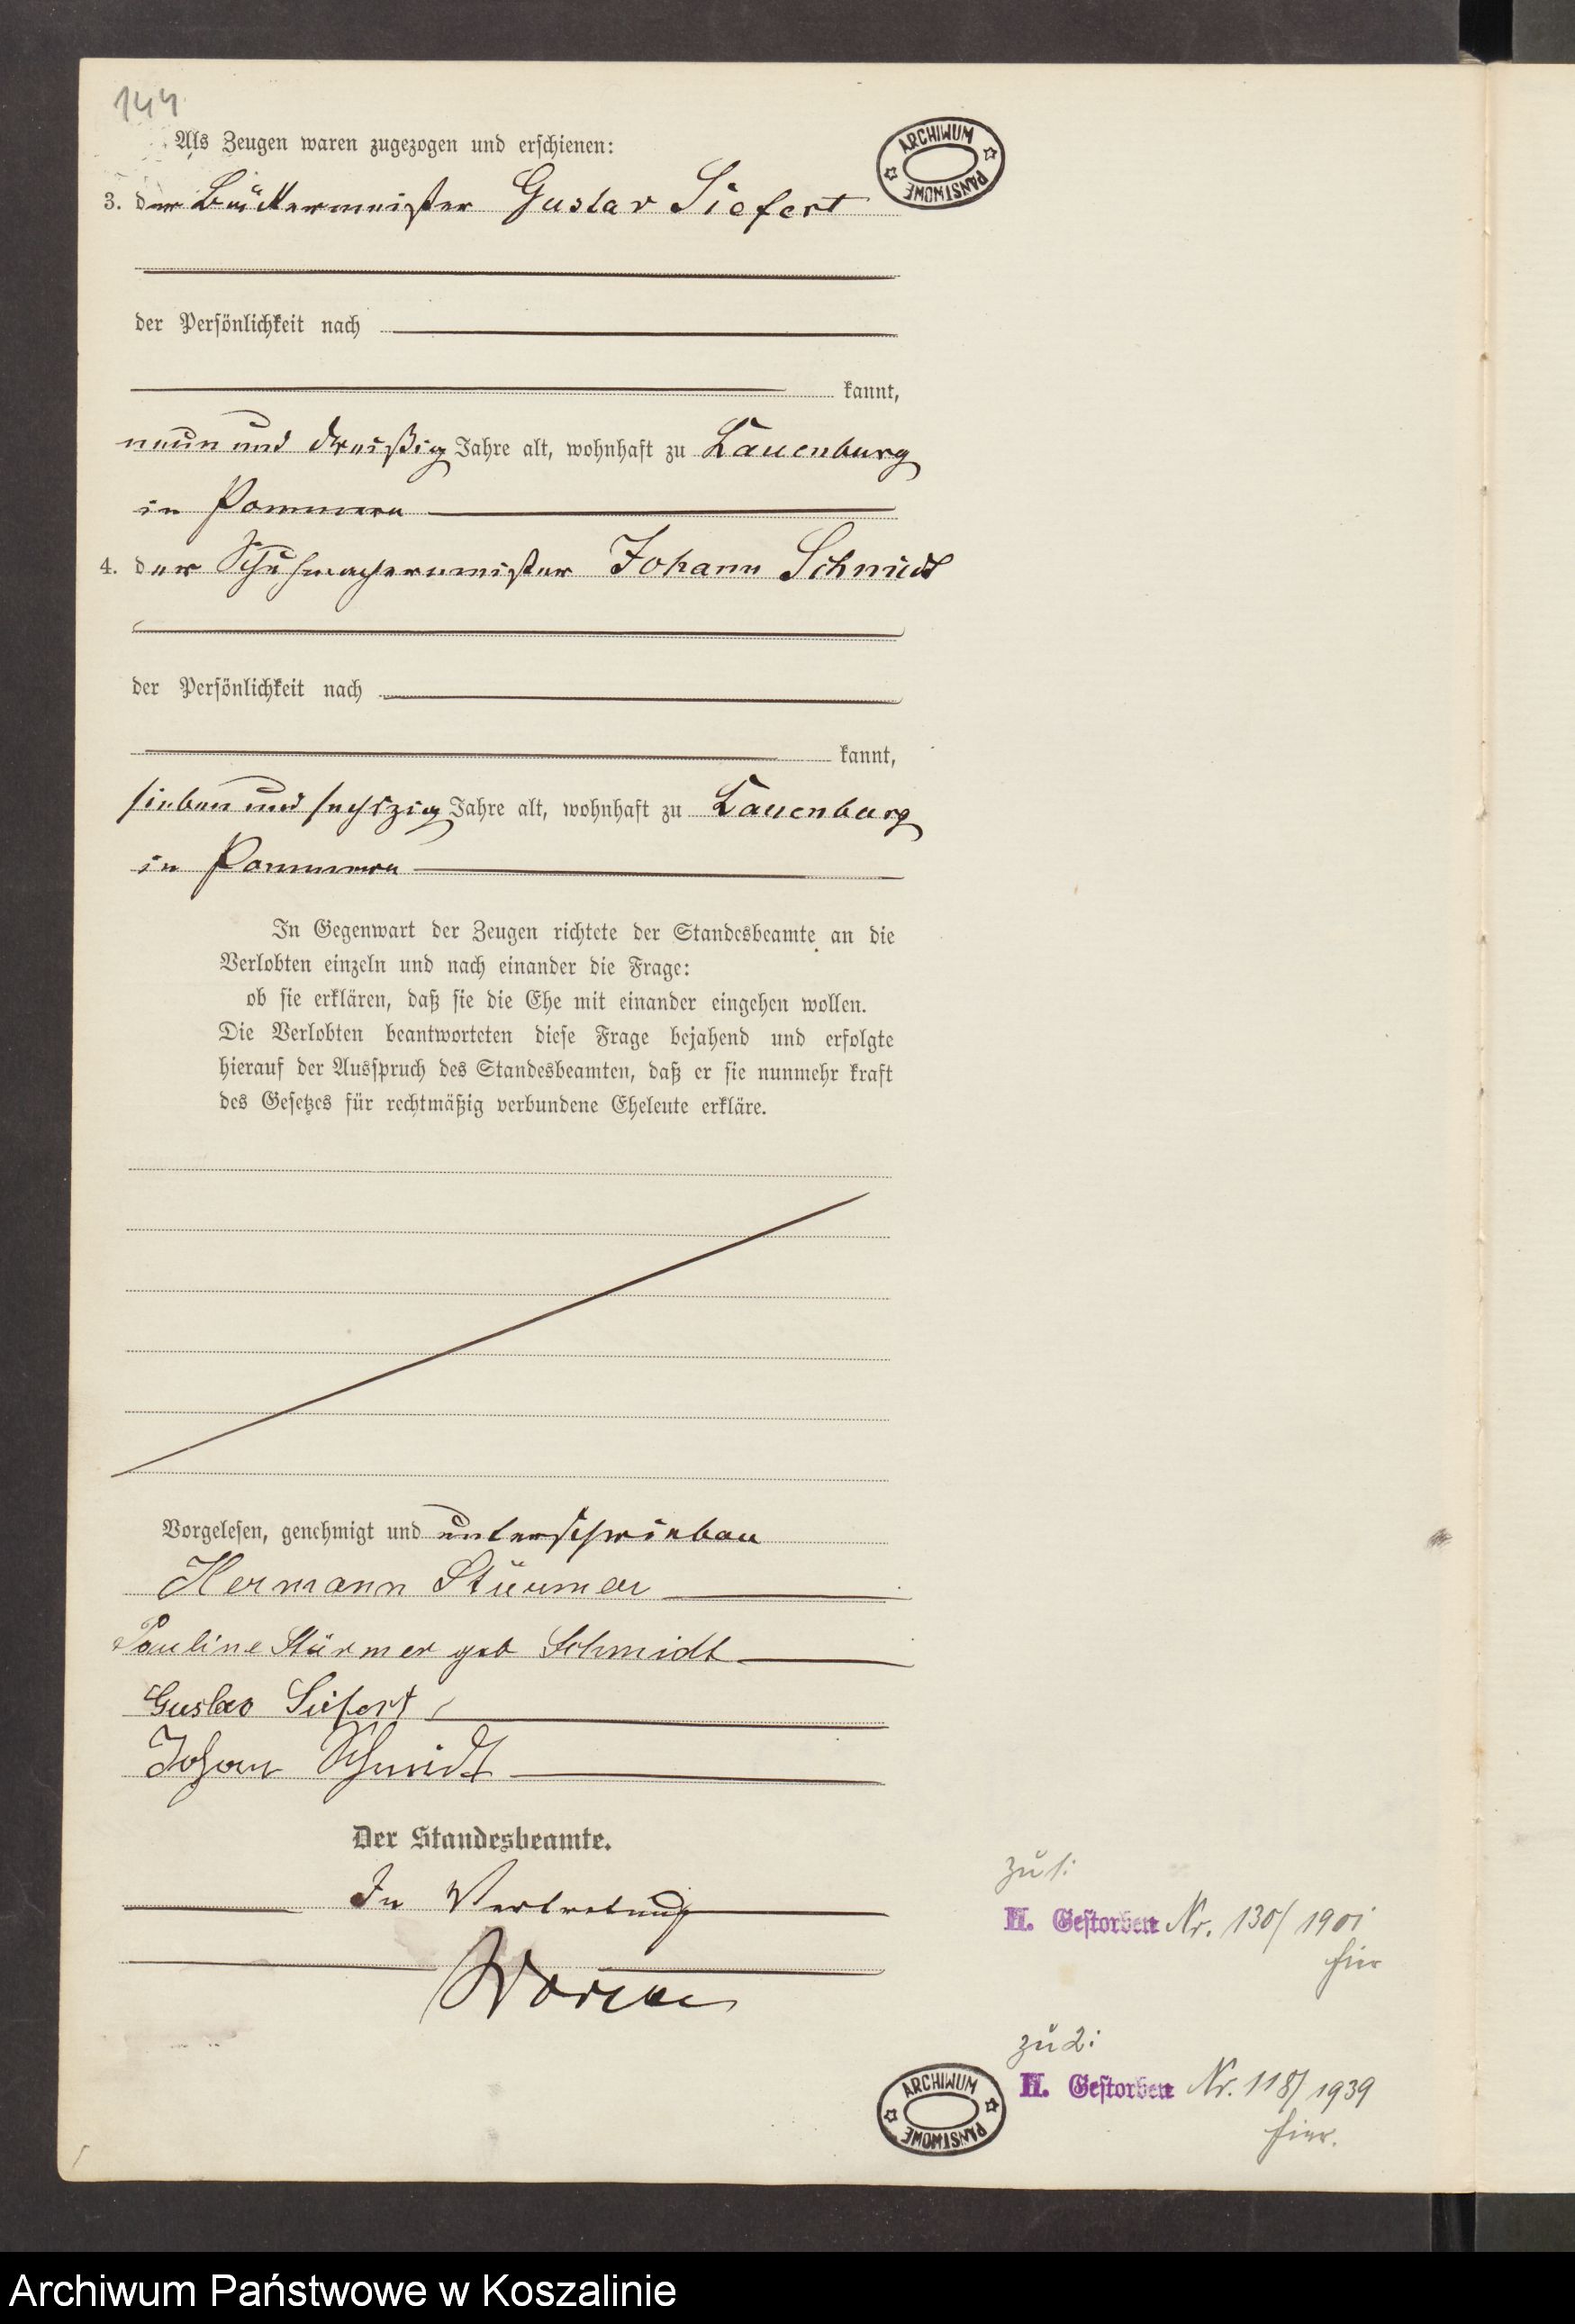 144
Als Zeugen waren zugezogen und erschienen:
ARCHIWUM PAŃSTWOWE
3. der Bäckermeister Gustav Siefert
der Persönlichkeit nach
kannt,
neun und dreißig Jahre alt, wohnhaft zu Lauenburg
in Pommern
4. der Schuhmachermeister Johann Schmidt
der Persönlichkeit nach
kannt,
sieben und sechszig Jahre alt, wohnhaft zu Lauenburg
in Pommern
In Gegenwart der Zeugen richtete der Standesbeamte an die
Verlobten einzeln und nach einander die Frage:
ob sie erklären, daß sie die Ehe mit einander eingehen wollen.
Die Verlobten beantworteten diese Frage bejahend und erfolgte
hierauf der Ausspruch des Standesbeamten, daß er sie nunmehr kraft
des Gesetzes für rechtmäßig verbundene Eheleute erkläre.
Vorgelesen, genehmigt und unterschrieben
Hermann Stürmer
Pauline Stürmer geb Schmidt
Gustav Siefert
Johan Schmidt
Der Standesbeamte.
In Vertretung
zu 1:
H. Gestorben Nr. 130/1901
hier
zu 2:
H. Gestorben Nr. 118/1939
hier.
ARCHIWUM PAŃSTWOWE
Archiwum Państwowe w Koszalinie